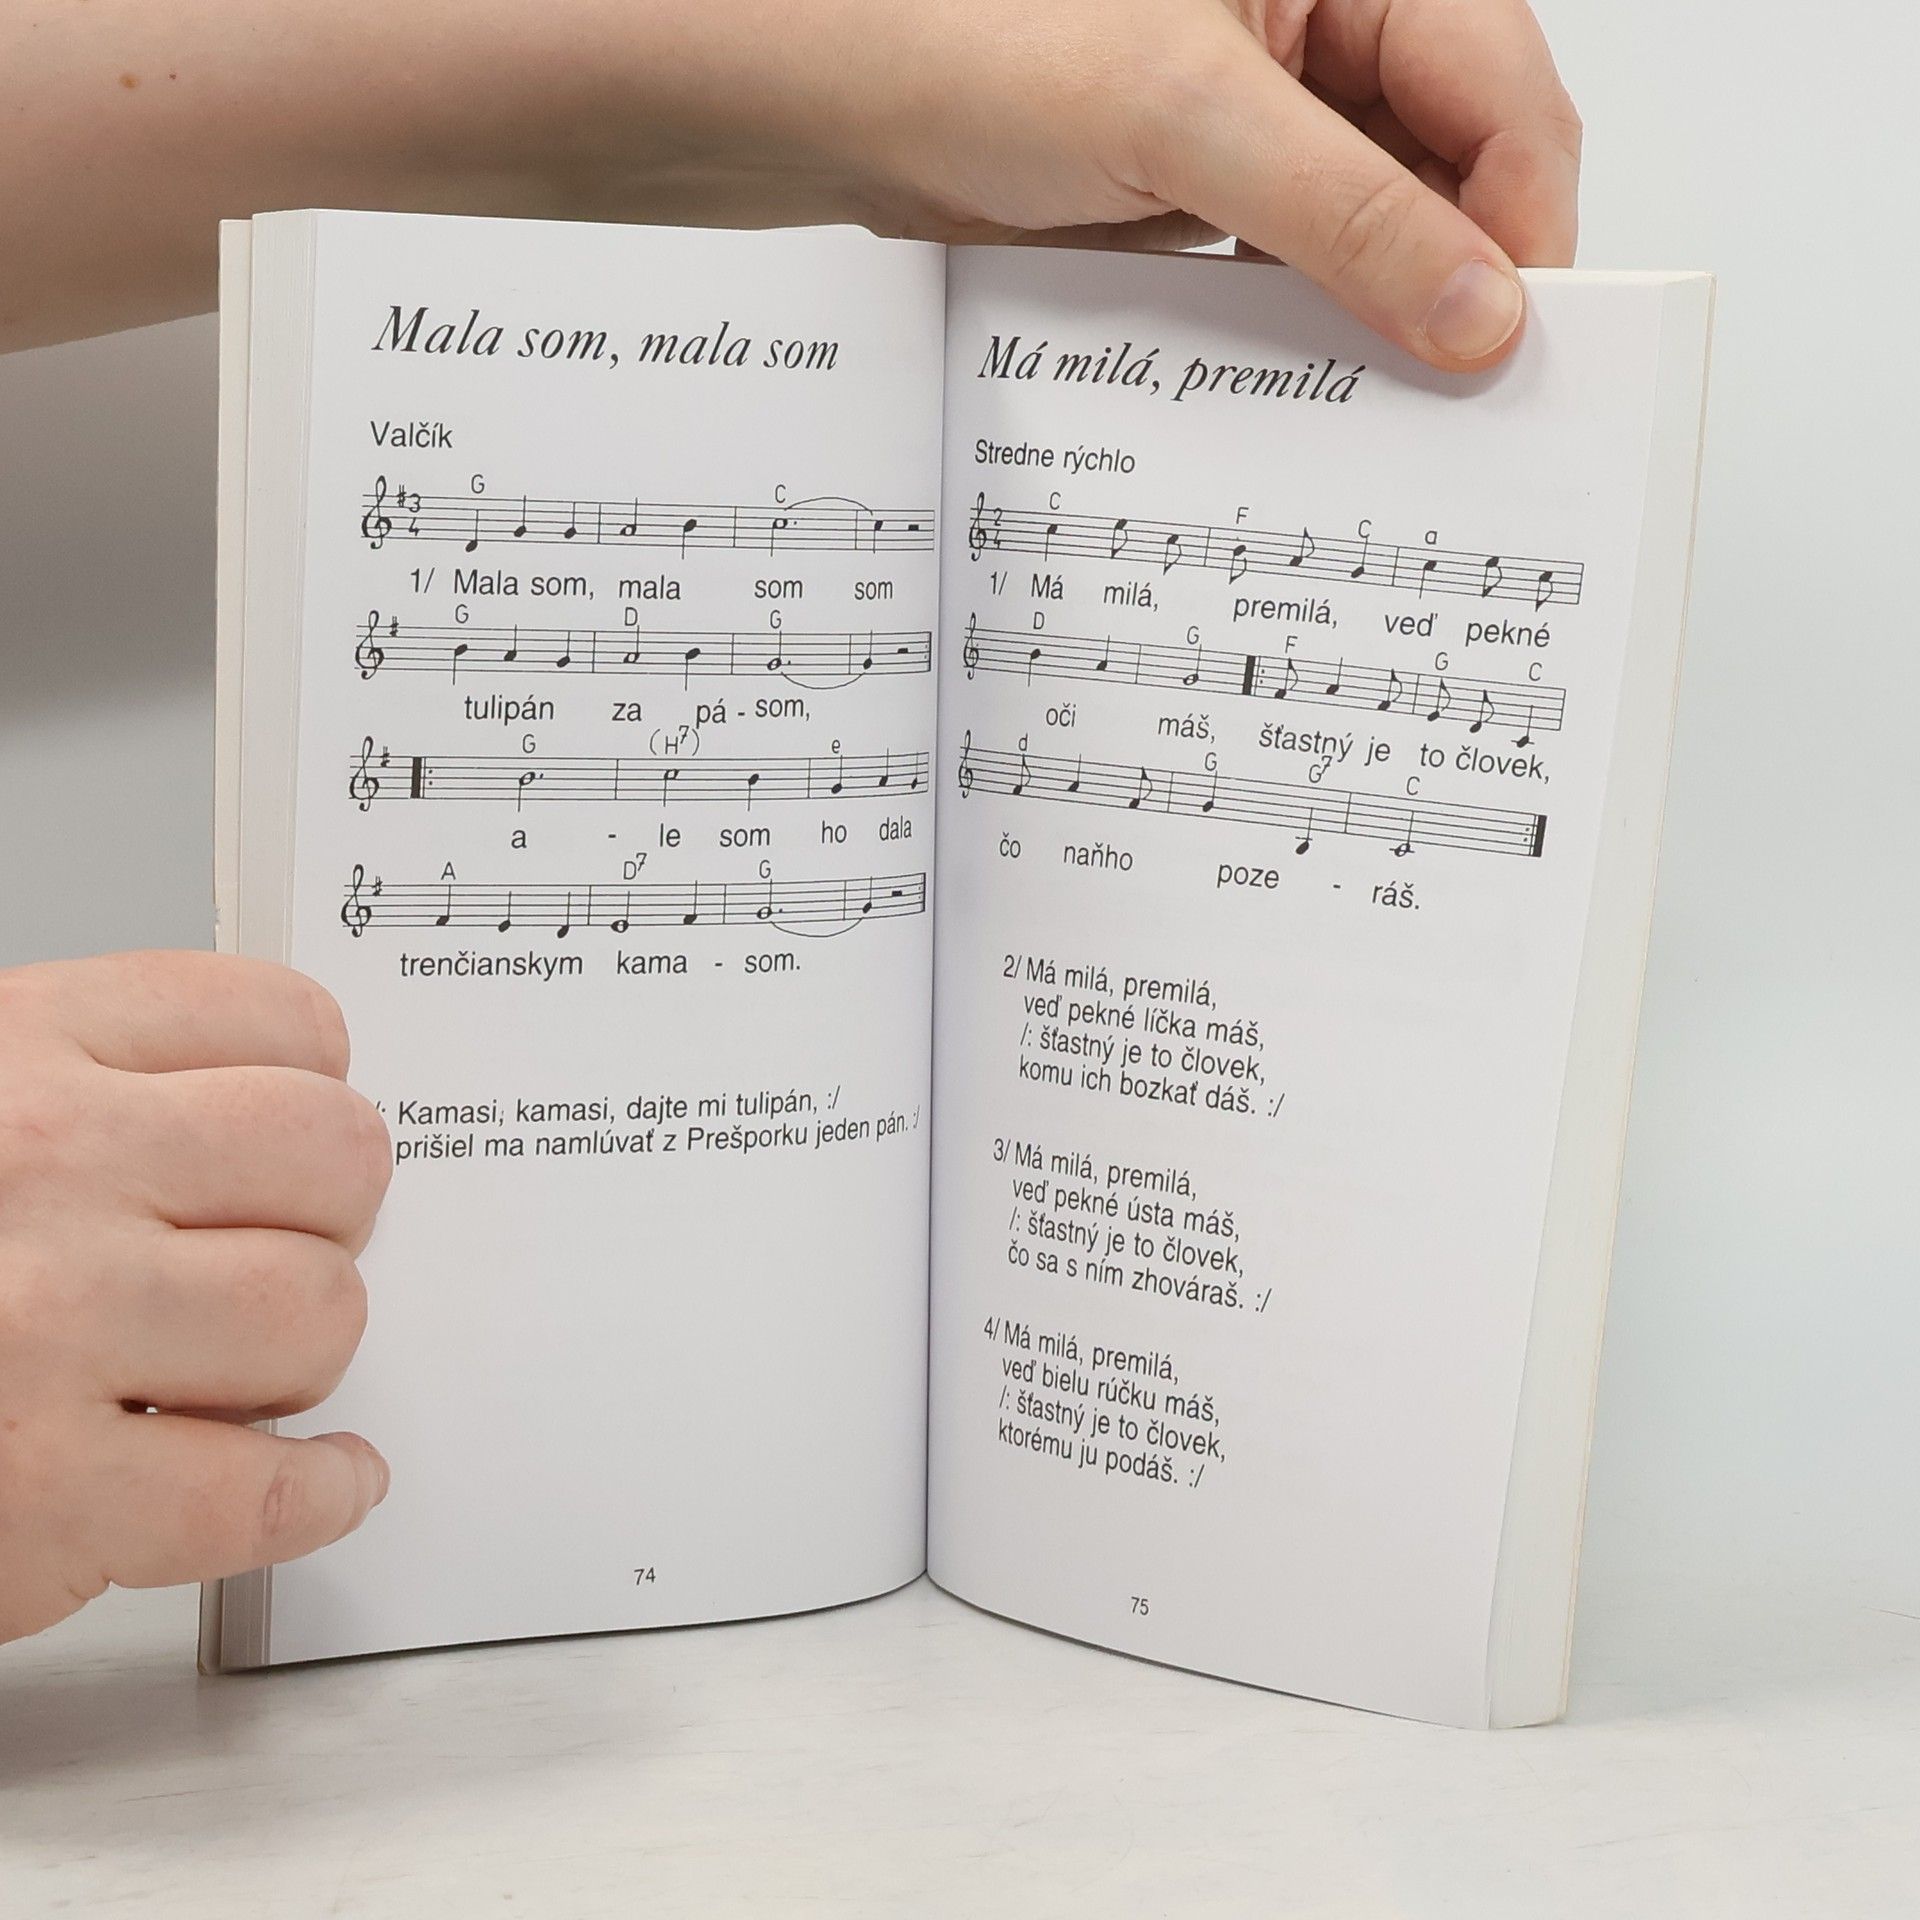 Mala som, mala som
Valčík
G C
1/ Mala som, mala som som
G D G
tulipán za pá - som,
G (H7) e
a - le som ho dala
A D7 G
trenčianskym kama - som.
/: Kamasi, kamasi, dajte mi tulipán, :/
prišiel ma namlúvať z Prešporku jeden pán. :/
74
Má milá, premilá
Stredne rýchlo
C F C a
1/ Má milá, premilá, veď pekné
D G F G C
oči máš, šťastný je to človek,
d G G7 C
čo naňho poze - ráš.
2/ Má milá, premilá,
veď pekné líčka máš,
/: šťastný je to človek,
komu ich bozkať dáš. :/
3/ Má milá, premilá,
veď pekné ústa máš,
/: šťastný je to človek,
čo sa s ním zhováraš. :/
4/ Má milá, premilá,
veď bielu rúčku máš,
/: šťastný je to človek,
ktorému ju podáš. :/
75